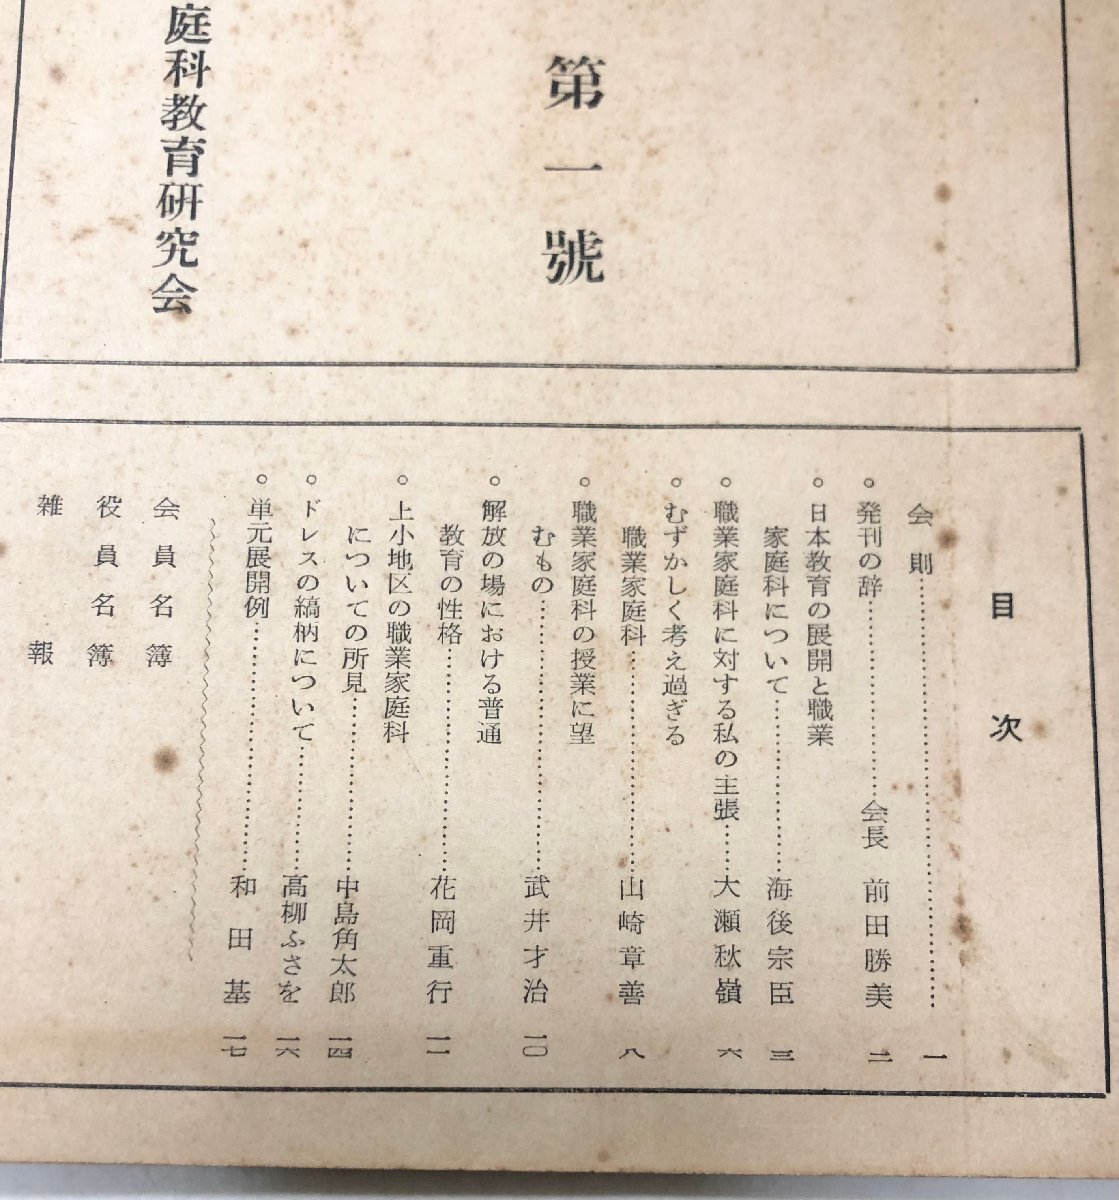 第一號
庭科教育研究会
目次
会則……………………………一
○発刊の辞……………会長 前田勝美 二
○日本教育の展開と職業
家庭科について……………海後宗臣 三
○職業家庭科に対する私の主張……大瀬秋嶺 六
○むずかしく考え過ぎる
職業家庭科……………山崎章善 八
○職業家庭科の授業に望
むもの……………武井才治 一〇
○解放の場における普通
教育の性格……………花岡重行 一一
○上小地区の職業家庭科
についての所見……………中島角太郎 一四
○ドレスの縞柄について……………高柳ふさを 一六
○単元展開例……………和田基 一七
会員名簿
役員名簿
雑報